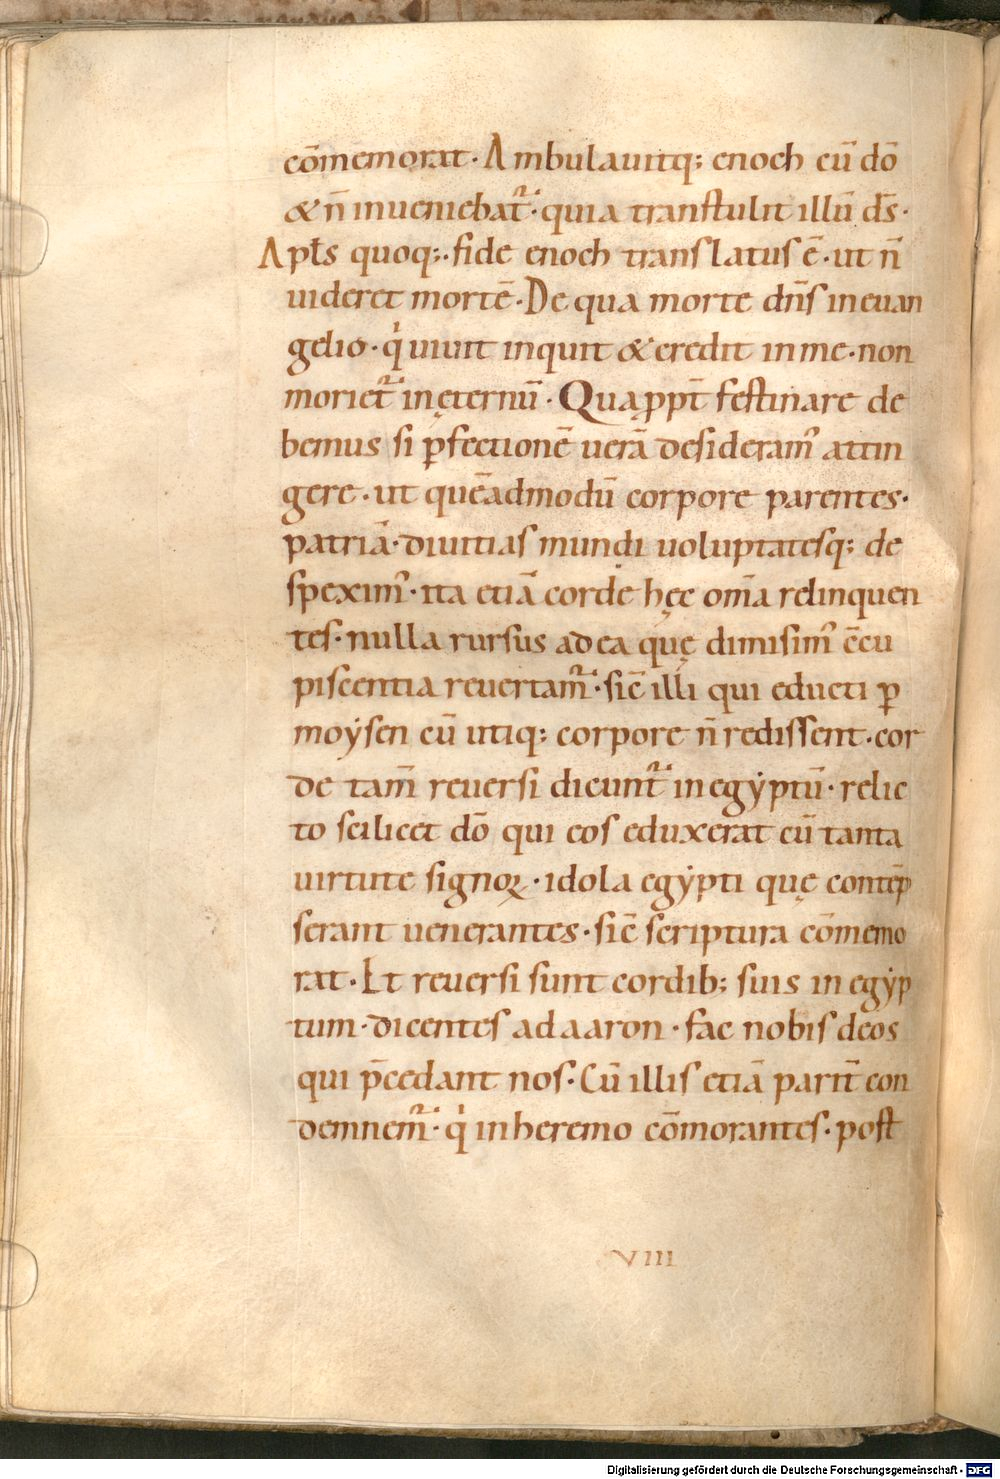 cōmemorat · Ambulauitq; enoch cū dō
& n̄ inueniebat᷑ · quia transtulit illū d̄s ·
Apłs quoq; · fide enoch translatus ē · ut n̄
uideret mortē · De qua morte dn̄s in euan
gelio · qͥ uiuit inquit & credit in me · non
moriet᷑ in ęternū · Qua ꝓpt̄ festinare de
bemus si ꝑfectionē uerā desideramꝰ attin
gere · ut quēadmodū corpore parentes ·
patriā · diuitias mundi uoluptatesq; de
speximꝰ · ita etiā corde hęc om̄a relinquen
tes · nulla rursus ad ea quę dimisimꝰ c̄cu
piscentia reuertam᷑ · sic̄ illi qui educti ꝑ
moẏsen cū utiq; corpore n̄ redissent · cor
de tam̄ reuersi dicunt᷑ in egẏptū · relic
to scilicet dō qui eos eduxerat cū tanta
uirtute signoꝝ · idola egẏpti quę contēp
serant uenerantes · sic̄ scriptura cōmemo
rat · Et reuersi sunt cordib; suis in egẏp
tum · dicentes ad aaron · fac nobis deos
qui p̄cedant nos · Cū illis etiā parit̄ con
demnem᷑ · qͥ in heremo cōmorantes · post
VIII
Digitalisierung gefördert durch die Deutsche Forschungsgemeinschaft - DFG